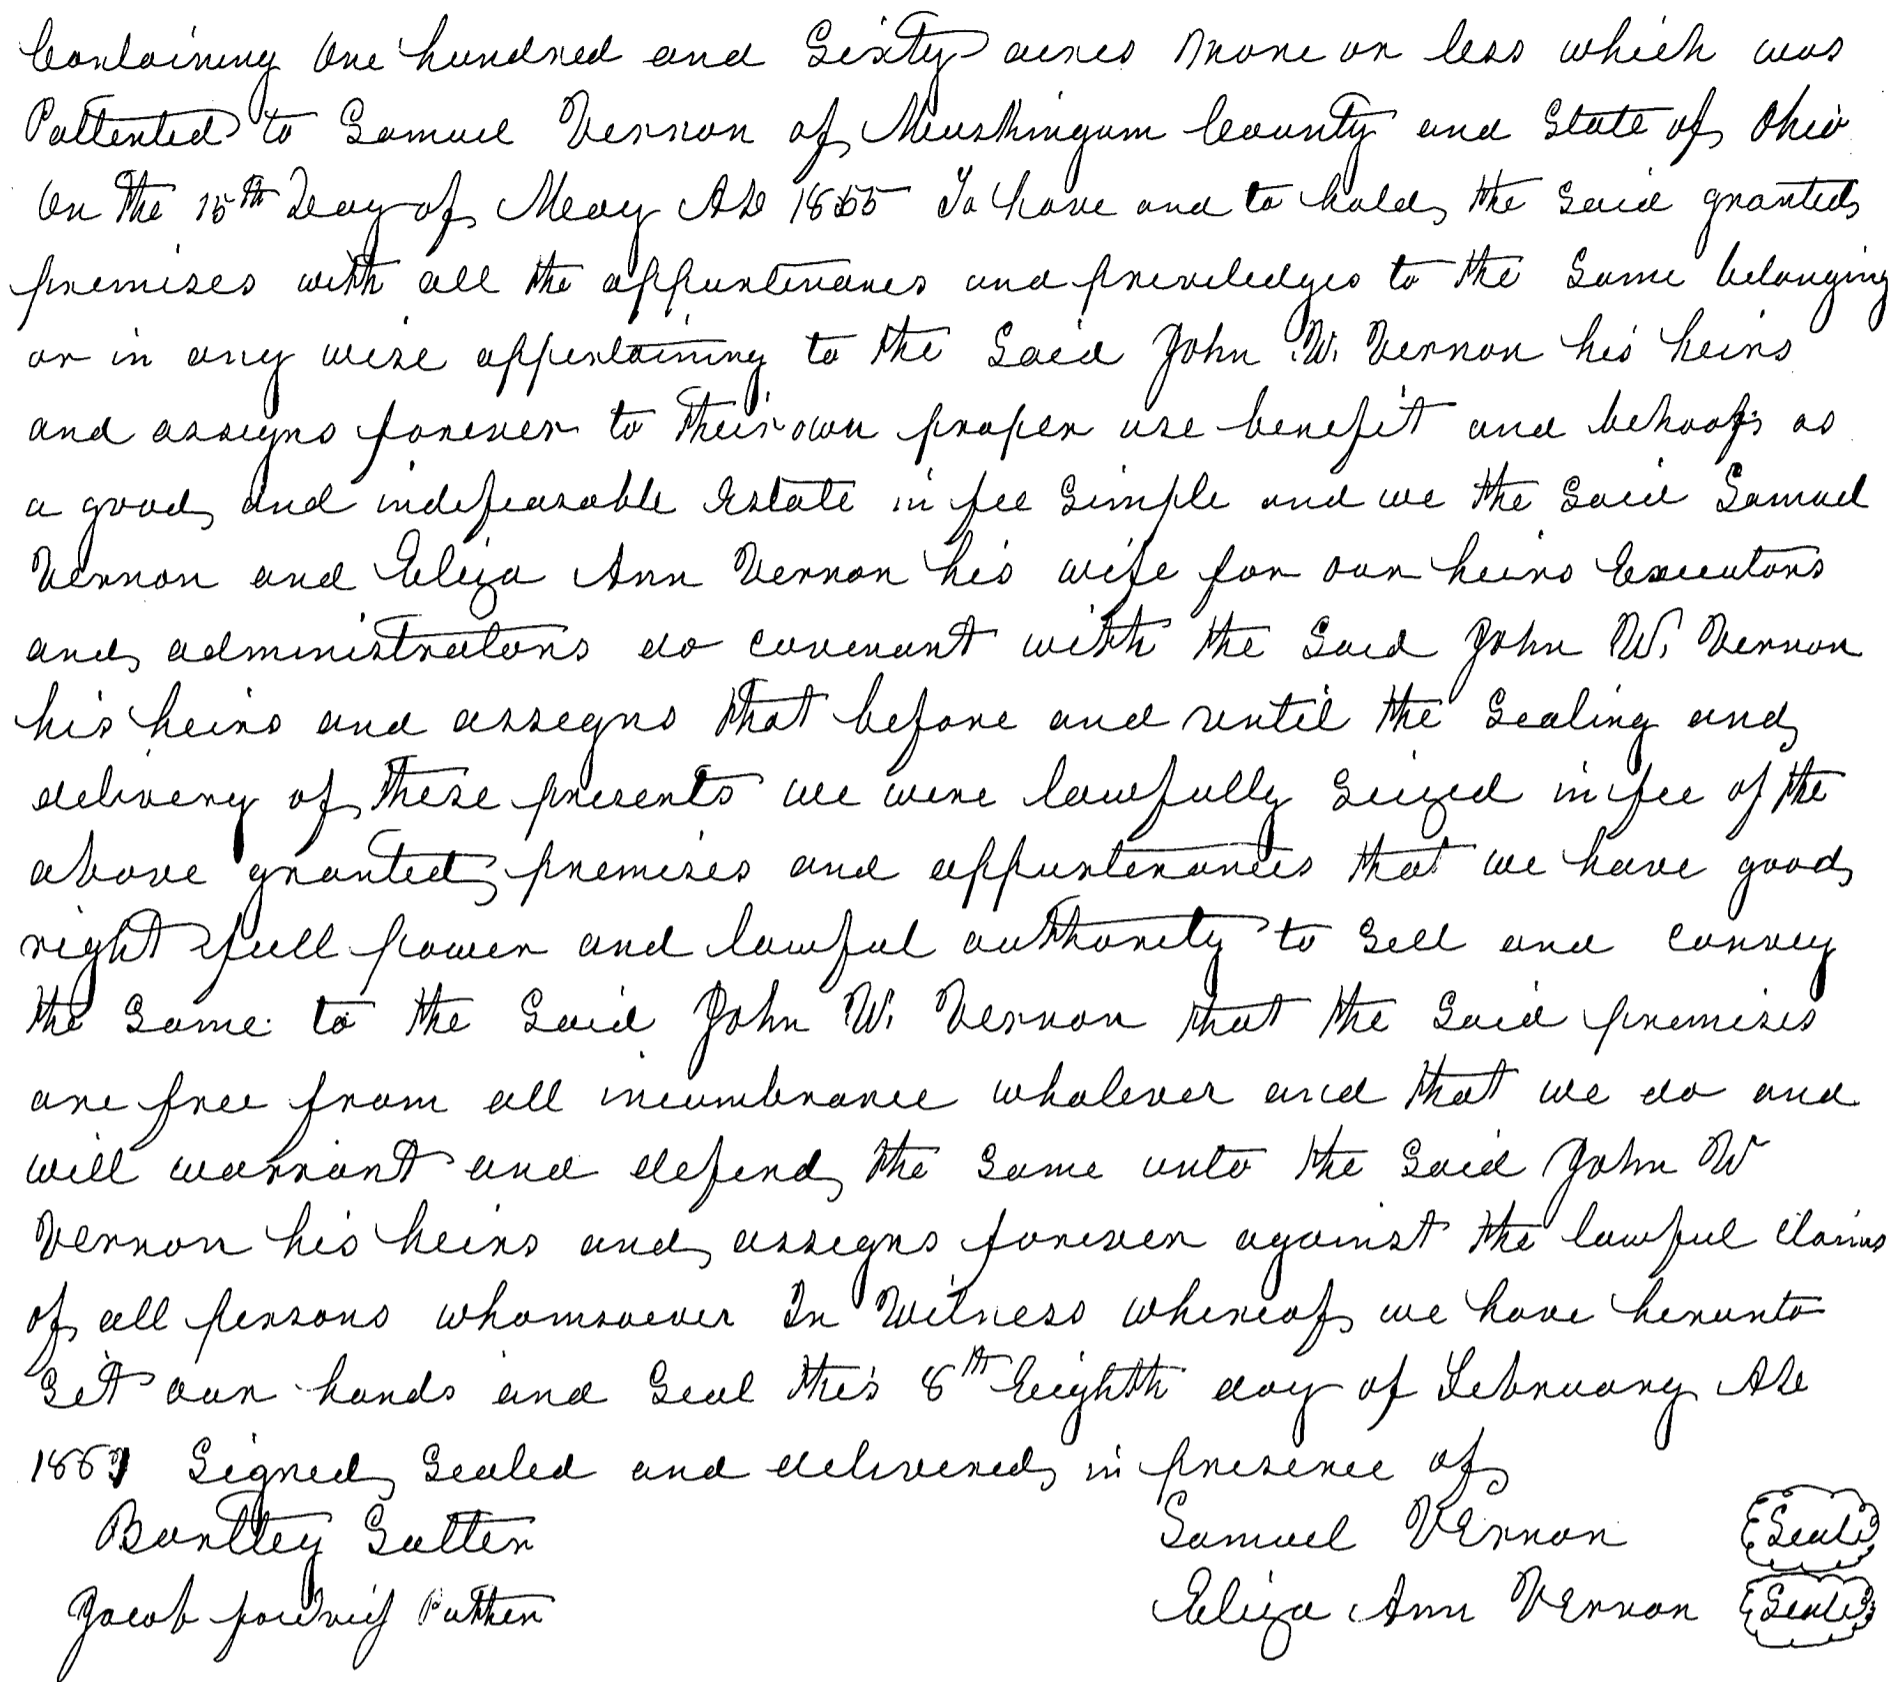 Containing One hundred and Sixty acres more or less which was
Pattented to Samuel Vernon of Muskingum County and State of Ohio
On the 15th Day of May AD 1855 To have and to hold the Said granted
premises with all the appurtenances and priviledges to the Same belonging
or in any wise appertaining to the Said John W. Vernon his heirs
and assigns forever to their own proper use benefit and behoof as
a good and indefeasable Estate in fee Simple and we the Said Samuel
Vernon and Eliza Ann Vernon his wife for our heirs Executors
and administrators do covenant with the Said John W. Vernon
his heirs and assigns that before and until the Sealing and
delivery of these presents we were lawfully Seized in fee of the
above granted premises and appurtenances that we have good
right full power and lawful authority to Sell and convey
the Same to the Said John W. Vernon that the Said premises
are free from all incumbrance whatever and that we do and
will warrant and defend the Same unto the Said John W
Vernon his heirs and assigns forever against the lawful claims
of all persons whomsoever In Witness whereof we have herunto
Set our hands and Seal this 8th Eighth day of February AD
Signed Sealed and delivered in presence of
Samuel Vernon Seal
Jacob Eliza Ann Vernon Seal